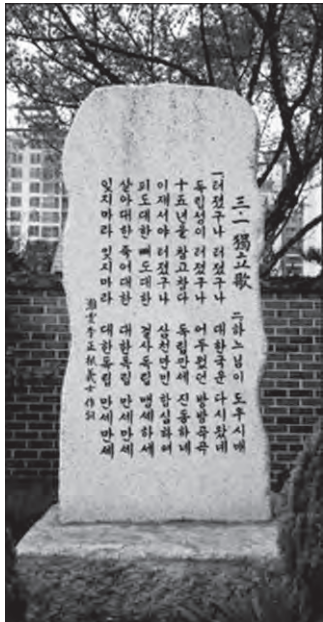 三一 獨立歌
一터졌구나 터졌구나
독립성이 터졌구나
十五년을 참고참다
이제서야 터졌구나
피도대한 뼈도대한
살아대한 죽어대한
잊지마라 잊지마라
二하느님이 도우시매
대한국운 다시왔네
어두웠던 방방곡곡
독립만세 진동하네
삼천만민 합심하여
결사독립 맹세하세
대한독립 만세만세
대한독립 만세만세
灘雲李正根義士作詞